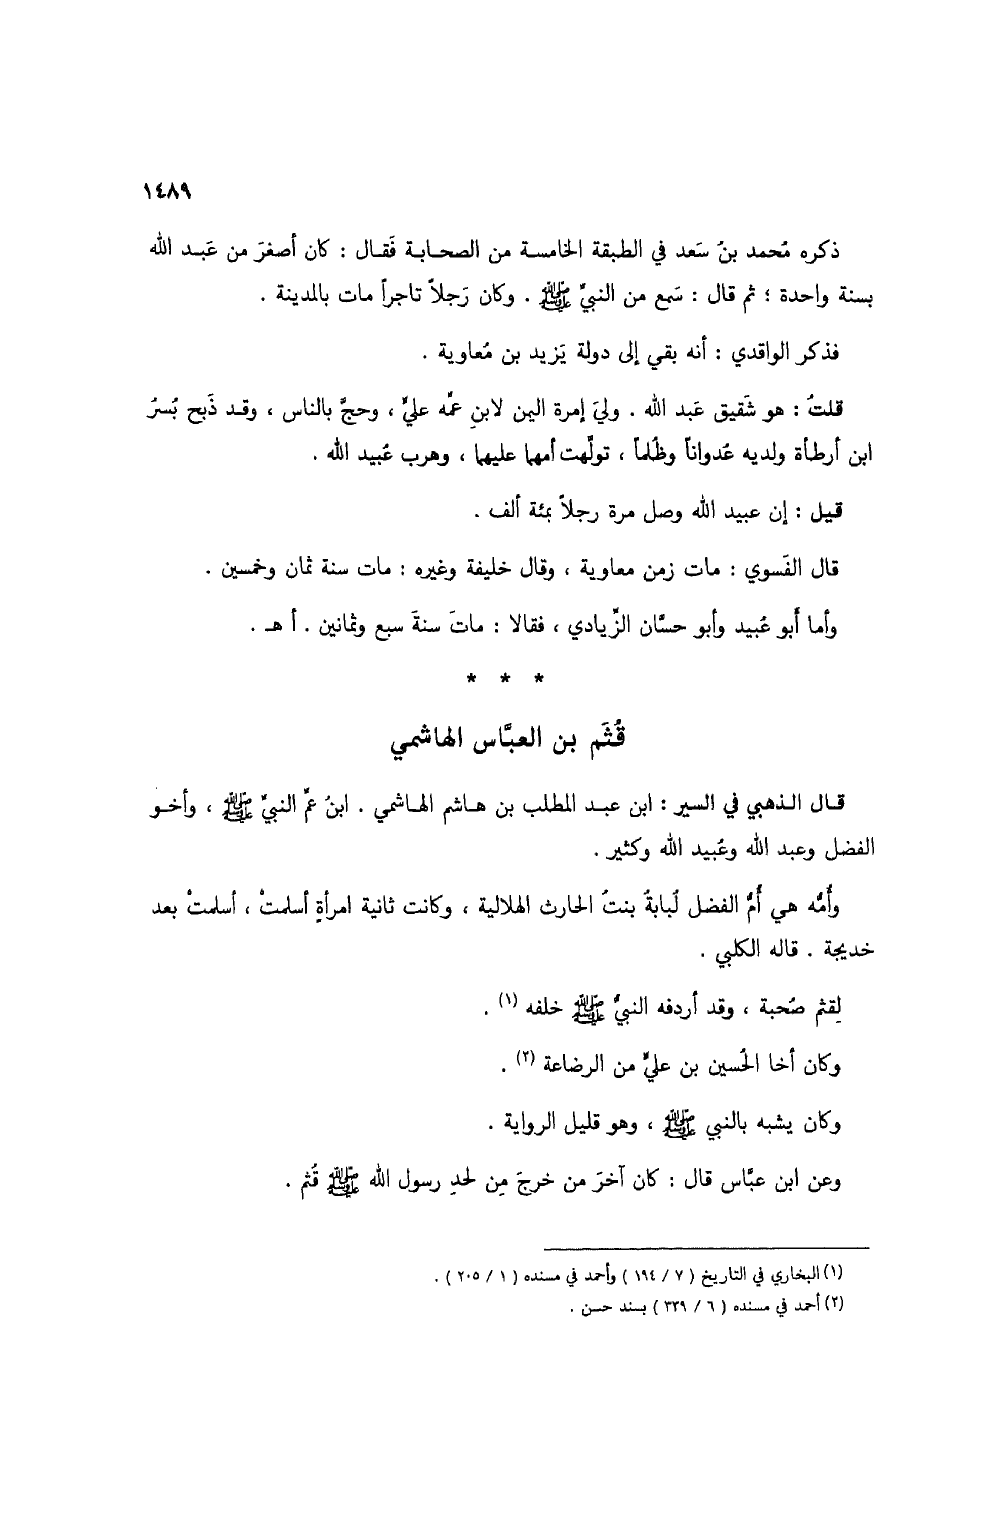 ١٤٨٩
ذكره مُحمد بنُ سَعد في الطبقة الخامسة من الصحابة فَقال : كان أصغرَ من عَبد الله
بسنة واحدة ؛ ثم قال : سَمِع من النبيِّ ﷺ . وكان رَجلاً تاجراً مات بالمدينة .
فذكر الواقدي : أنه بقي إلى دولة يَزيد بن مُعاوية .
قلتُ : هو شَقيق عَبد الله . وليَ إمرة اليمن لابنِ عمِّه عليٍّ ، وحجَّ بالناس ، وقد ذَبح بُسرُ
ابن أرطأة ولديه عُدواناً وظُلماً ، تولَّهت أمهما عليهما ، وهرب عُبيد الله .
قيل : إن عبيد الله وصل مرة رجلاً بمئة ألف .
قال الفَسوي : مات زمن معاوية ، وقال خليفة وغيره : مات سنة ثمان وخمسين .
وأما أَبو عُبيد وأبو حسَّان الزِّيادي ، فقالا : ماتَ سنةَ سبع وثمانين . أ هـ .
* * *
قُثَم بن العبَّاس الهاشمي
قال الذهبي في السير : ابن عبد المطلب بن هاشم الهاشمي . ابنُ عمِّ النبيِّ ﷺ ، وأخو
الفضل وعبد الله وعُبيد الله وكثير .
وأُمُّه هي أُمُّ الفضل لُبابةُ بنتُ الحارث الهلالية ، وكانت ثانية امرأةٍ أسلمتْ ، أسلمتْ بعد
خديجة . قاله الكلبي .
لِقثم صُحبة ، وقد أردفه النبيُّ ﷺ خلفه (١) .
وكان أخا الحُسين بن عليٍّ من الرضاعة (٢) .
وكان يشبه بالنبي ﷺ ، وهو قليل الرواية .
وعن ابن عبَّاس قال : كان آخرَ من خرجَ مِن لحدِ رسول الله ﷺ قُثم .
(١) البخاري في التاريخ ( ٧ / ١٩٤ ) وأحمد في مسنده ( ١ / ٢٠٥ ) .
(٢) أحمد في مسنده ( ٦ / ٣٣٩ ) بسند حسن .